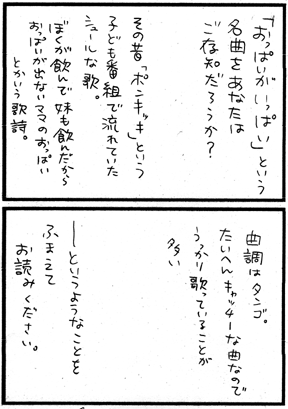 「おっぱいがいっぱい」という
名曲をあなたは
ご存知だろうか?
その昔「ポンキッキ」という
子ども番組で流れていた
シュールな歌。
ぼくが飲んで妹も飲んだから
おっぱいが出ないママのおっぱい
とかいう歌詩。
曲調はタンゴ。
たいへんキャッチーな曲なので
うっかり歌っていることが
多い
──というようなことを
ふまえて
お読みください。